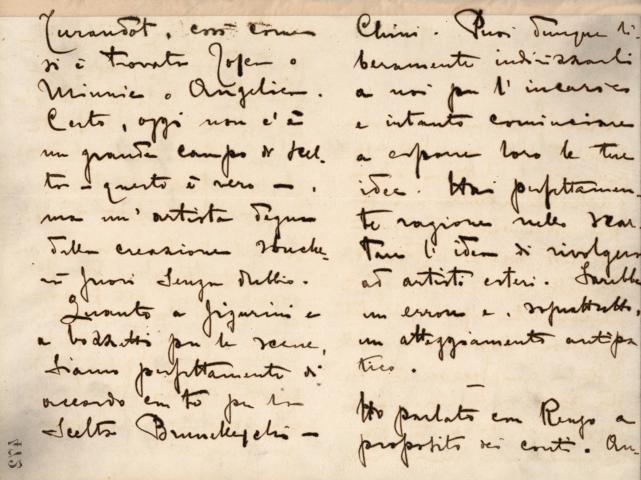 Turandot, così come
si è trovata Tosca o
Minnie o Angelica.
Certo, oggi non c'è
un grande campo di scel-
ta - questo è vero -,
ma un'artista degna
della creazione sbuche-
rà fuori senza dubbio.
Quanto a figurini e
a bozzetti per le scene,
siamo perfettamente di
accordo con te per la
scelta Brunelleschi -
Chini. Puoi dunque li-
beramente indirizzarli
a noi per l'incarico
e intanto cominciare
a esporre loro le tue
idee. Hai perfettamen-
te ragione nello scar-
tare l'idea di rivolgersi
ad artisti esteri. Sarebbe
un errore e, soprattutto,
un atteggiamento antipa
tico.
Ho parlato con Renzo a
proposito dei conti. An-
472